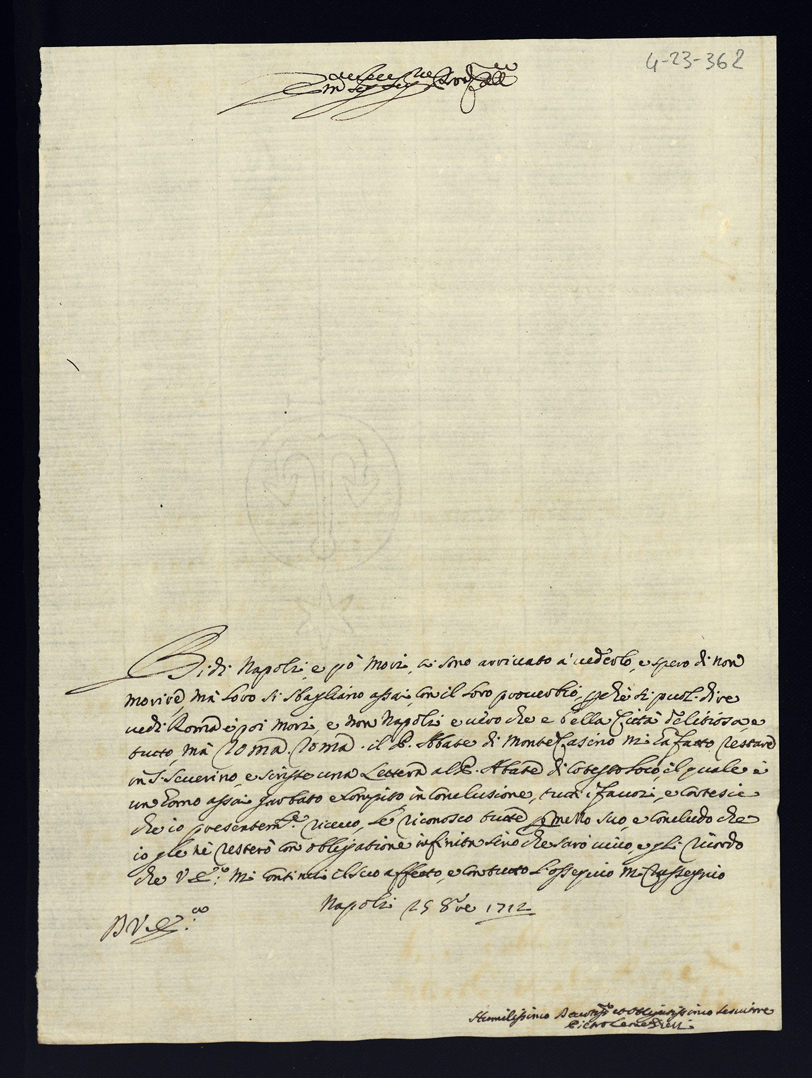 4-23-362
Vidi Napoli, e pò mori, ci sono arrivato a vederlo, e spero di non
morire mà loro si sbagliano assai con il loro proverbio, perche si puol dire
vedi Roma e poi mori, e non Napoli e vero che e bella Città delitiosa, e
tutto, mà Roma, Roma. il P. Abate di Monte Casino mi hà fatto restare
in S. Severino, e scrisse una Lettera al P. Abate di Cotesto loco il quale è
un Homo assai garbato e compito in conclusione, tutti i favori, e cortesie
che io presentem.te ricevo, le riconosco tutte p mezzo suo, e concludo che
io gle ne resterò con obligatione infinita sino che sarò vivo, e gli ricordo
che V. mi continui il suo affetto, e con tutto l'ossequio mi rassegnio
Napoli 25 8bre 1712
D V
Humilissimo et Obligatissimo Servitore
Pietro